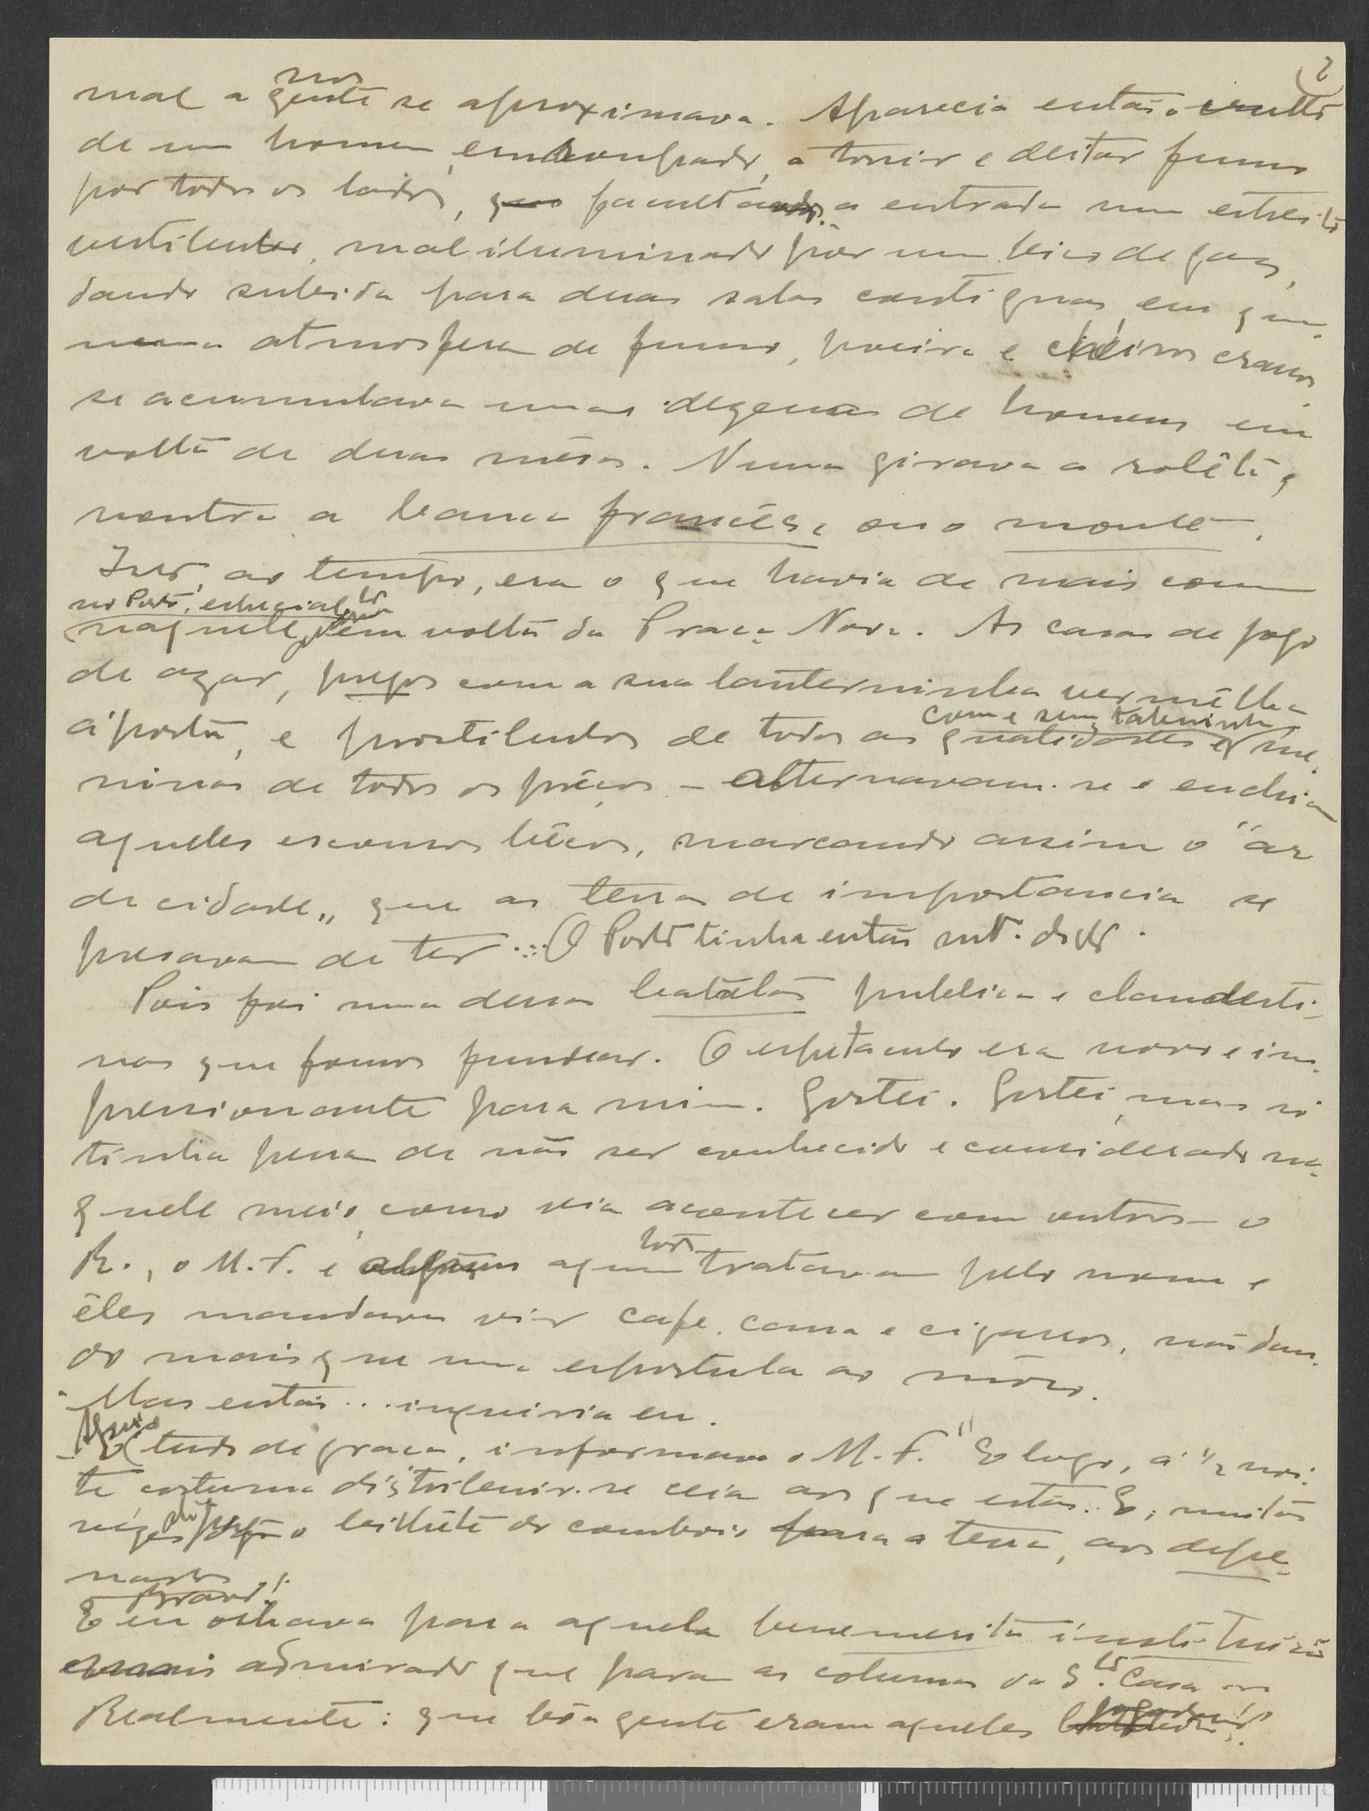 2
nos
mal a gente se aproximava. Aparecia então o vulto
de um homem, encaroupado, a tossir e deitar fumo
por todos os lados, que facultava a entrada num estreito
vestibulo, mal iluminado por um bico de gaz,
dando subida para duas salas contiguas, em que,
numa atmosfera de fumo, poeira e cheiros crassos
se acumulava umas dezenas de homens em
volta de duas mêsas. Numa girava a rolêta,
noutra a banca francêsa ou o monte.
Isso, ao tempo, era o que havia de mais comum
no Porto, especialmente
naquele em volta da Praça Nova. As casas de jogo
de azar, pregos com a sua lanterninha vermêlha
com e sem tabuinhas
á porta, e prostibulos de todas as qualidades e me-
ninas de todos os prêços - alternavam-se e enchiam
aqueles esconsos bêcos, marcando assim o "ar
de cidade" que as terras de importancia se
presavam de ter... O Porto tinha então mto. disso.
Pois foi numa dessas batotas publicas e clandesti-
nas que fomos fundear. O espetaculo era novo e im-
pressionante para mim. Gostei. Gostei, mas só
tinha pena de não ser conhecido e considerado na-
quele meio, como via acontecer com outros - o
R., o M. F. e alguns a quem todos tratavam pelo nome e
êles mandavam vir café, cana e cigarros, não dan-
do mais que uma esportula ao môço.
- Mas então... inquiria eu.
Aqui é
- É tudo de graça, informava o M. F. "E logo, á 1/2 noi-
te costuma distribuir-se ceia aos que estão. E, muitas
vezes dão o bilhête do comboio para a terra, aos depe-
nados.
Bravo!
E eu olhava para aquela benemerita instituição
mais admirado que para as colunas da Sta. Casa
Realmente: que bôa gente eram aqueles jogadores!